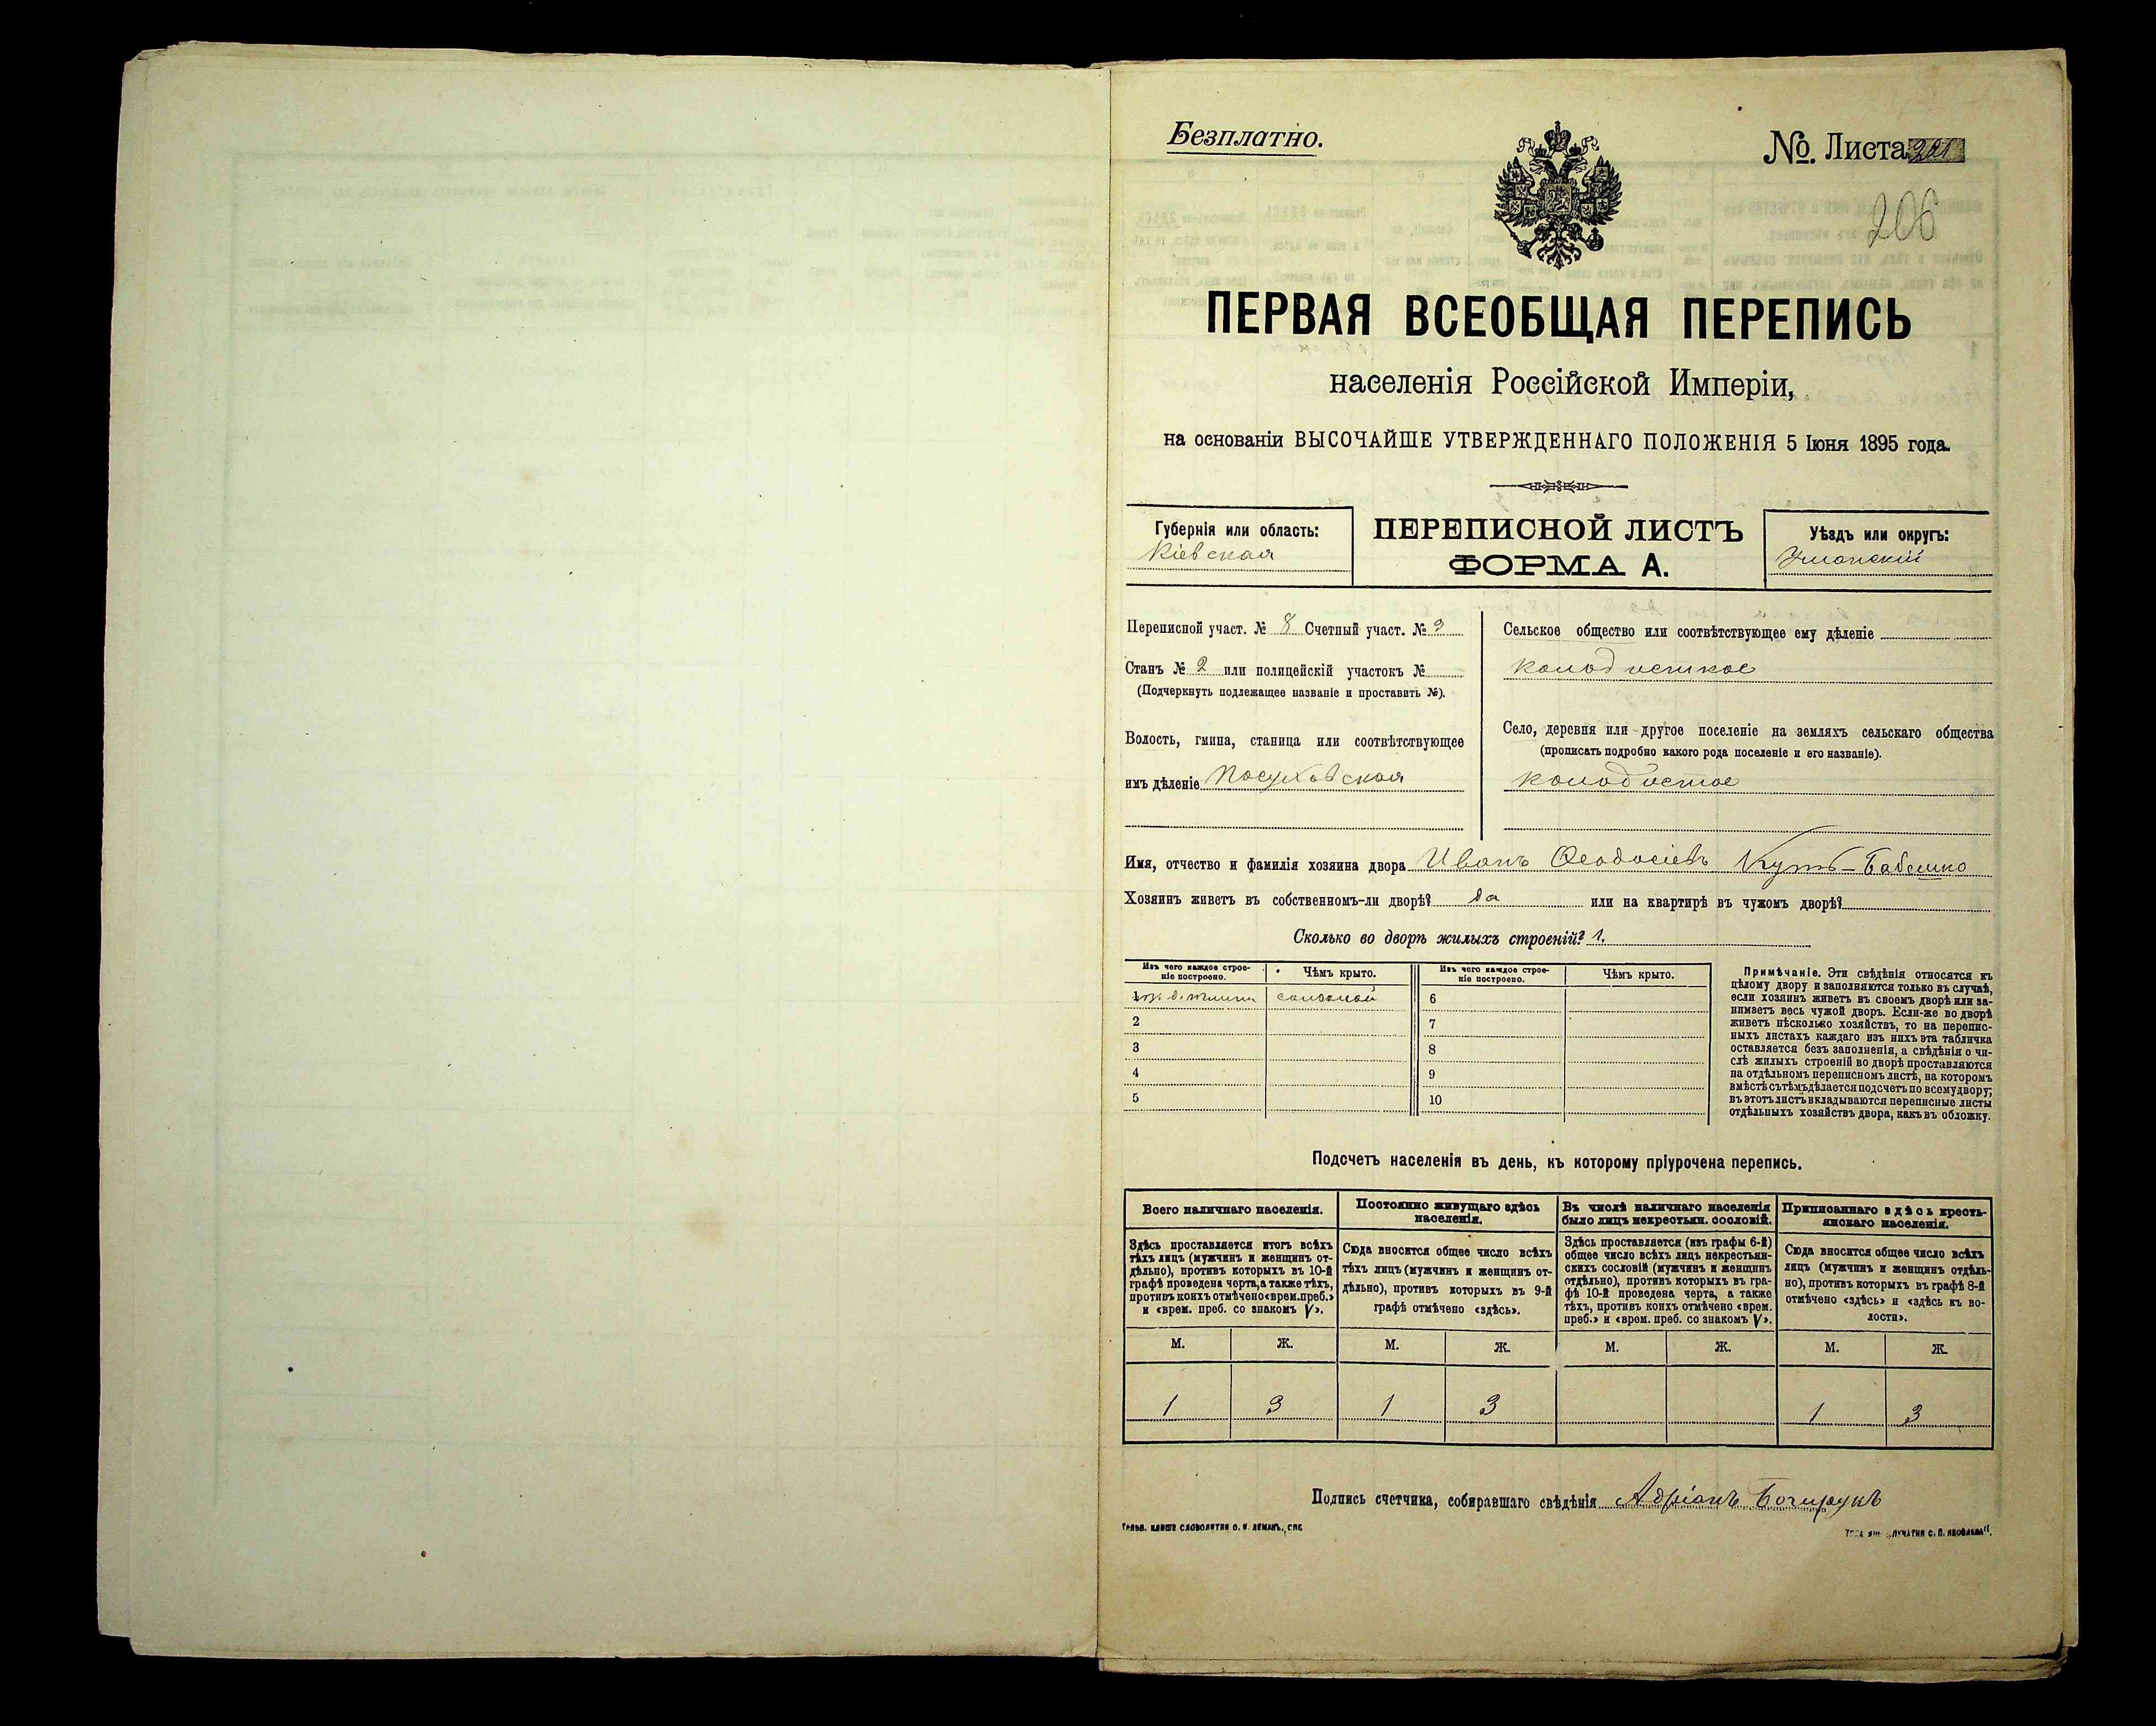 Безплатно.
№. Листа 201
206
ПЕРВАЯ ВСЕОБЩАЯ ПЕРЕПИСЬ
населенія Россійской Имперіи,
на основаніи ВЫСОЧАЙШЕ УТВЕРЖДЕННАГО ПОЛОЖЕНІЯ 5 Іюня 1895 года.
Губернія или область:
Кіевская
ПЕРЕПИСНОЙ ЛИСТЪ
ФОРМА А.
Уѣздъ или округъ:
Уманскій
Переписной участ. № 8 Счетный участ. № 9
Станъ № 2 или полицейскій участокъ №
(Подчеркнуть подлежащее названіе и проставить №).
Волость, гмина, станица или соотвѣтствующее
имъ дѣленіе Посуховская
Сельское общество или соотвѣтствующее ему дѣленіе
Колодисткое
Село, деревня или другое поселеніе на земляхъ сельскаго общества
(прописать подробно какого рода поселеніе и его названіе).
Колодистое
Имя, отчество и фамилія хозяина двора Иванъ Ѳеодосіевъ Кутъ-Бабешко
Хозяинъ живетъ въ собственномъ-ли дворѣ? да или на квартирѣ въ чужомъ дворѣ?
Сколько во дворѣ жилыхъ строеній? 1.
Изъ чего каждое строе-
ніе построено.
Чѣмъ крыто.
Изъ чего каждое строе-
ніе построено.
Чѣмъ крыто.
1 соломой
2
3
4
5
6
7
8
9
10
Примѣчаніе. Эти свѣдѣнія относятся къ
цѣлому двору и заполняются только въ случаѣ,
если хозяинъ живетъ въ своемъ дворѣ или за-
нимаетъ весь чужой дворъ. Если-же во дворѣ
живетъ нѣсколько хозяйствъ, то на перепис-
ныхъ листахъ каждаго изъ нихъ эта табличка
оставляется безъ заполненія, а свѣдѣнія о чи-
слѣ жилыхъ строеній во дворѣ проставляются
на отдѣльномъ переписномъ листѣ, на которомъ
вмѣстѣ съ тѣмъ дѣлается подсчетъ по всему двору;
въ этотъ листъ вкладываются переписные листы
отдѣльныхъ хозяйствъ двора, какъ въ обложку.
Подсчетъ населенія въ день, къ которому пріурочена перепись.
Всего наличнаго населенія.
Здѣсь проставляется итогъ всѣхъ
тѣхъ лицъ (мужчинъ и женщинъ от-
дѣльно), противъ которыхъ въ 10-й
графѣ проведена черта, а также тѣхъ,
противъ коихъ отмѣчено «врем. преб.»
и «врем. преб. со знакомъ V».
Постоянно живущаго здѣсь
населенія.
Сюда вносится общее число всѣхъ
тѣхъ лицъ (мужчинъ и женщинъ от-
дѣльно), противъ которыхъ въ 9-й
графѣ отмѣчено «здѣсь».
Въ числѣ наличнаго населенія
было лицъ некрестьян. сословій.
Здѣсь проставляется (изъ графы 6-й)
общее число всѣхъ лицъ некрестьян-
скихъ сословій (мужчинъ и женщинъ
отдѣльно), противъ которыхъ въ гра-
фѣ 10-й проведена черта, а также
тѣхъ, противъ коихъ отмѣчено «врем.
преб.» и «врем. преб. со знакомъ V».
Приписаннаго здѣсь кресть-
янскаго населенія.
Сюда вносится общее число всѣхъ
лицъ (мужчинъ и женщинъ отдѣль-
но), противъ которыхъ въ графѣ 8-й
отмѣчено «здѣсь» и «здѣсь къ во-
лости».
М. Ж. М. Ж. М. Ж. М. Ж.
1 3 1 3 1 3
Подпись счетчика, собиравшаго свѣдѣнія Адріанъ
СЛОВОЛИТНИ О. И. ЛЕМАНЪ, СПБ